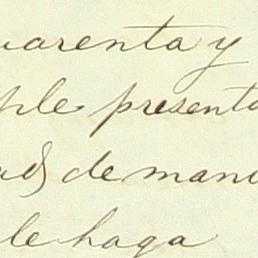 uarenta y
ple presenta
ad de mani
le haga